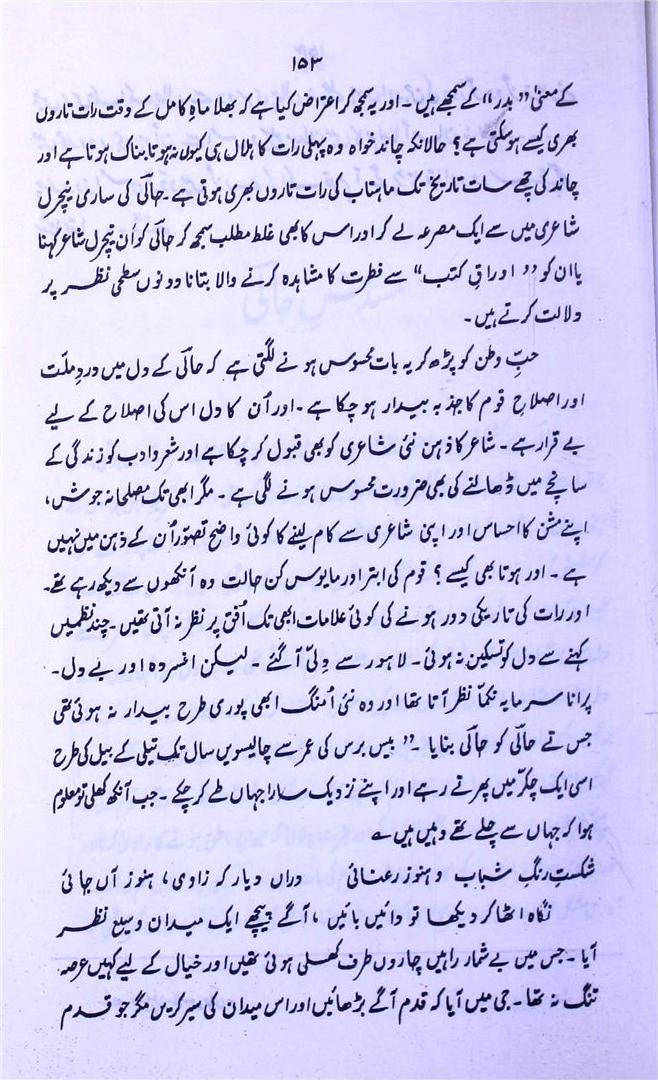 ۱۵۳
کے معنیٰ ”بدر“ کے سمجھے ہیں ۔ اور یہ سمجھ کر اعتراض کیا ہے کہ بھلا ماہِ کامل کے وقت رات تاروں
بھری کیسے ہو سکتی ہے؟ حالانکہ چاند خواہ وہ پہلی رات کا ہلال ہی کیوں نہ ہو تابناک ہوتا ہے اور
چاند کی چھے سات تاریخ تک ماہتاب کی رات تاروں بھری ہوتی ہے ۔ حالؔی کی ساری نیچرل
شاعری میں سے ایک مصرعہ لے کر اور اس کا بھی غلط مطلب سمجھ کر حالؔی کو اَن نیچرل شاعر کہنا
یا ان کو ”اوراقِ کتب“ سے فطرت کا مشاہدہ کرنے والا بتانا دونوں سطحی نظر پر
دلالت کرتے ہیں ۔
حبِّ وطن کو پڑھ کر یہ بات محسوس ہونے لگتی ہے کہ حالؔی کے دل میں دردِ ملّت
اور اصلاحِ قوم کا جذبہ بیدار ہو چکا ہے ۔ اور اُن کا دل اس کی اصلاح کے لیے
بے قرار ہے ۔ شاعر کا ذہن نئی شاعری کو بھی قبول کر چکا ہے اور شعر و ادب کو زندگی کے
سانچے میں ڈھالنے کی بھی ضرورت محسوس ہونے لگی ہے ۔ مگر ابھی تک مصلحانہ جوش،
اپنے مشن کا احساس اور اپنی شاعری سے کام لینے کا کوئی واضح تصوّر اُن کے ذہن میں نہیں
ہے ۔ اور ہوتا بھی کیسے؟ قوم کی ابتر اور مایوس کن حالت وہ آنکھوں سے دیکھ رہے تھے ۔
اور رات کی تاریکی دور ہونے کی کوئی علامات ابھی تک اُفق پر نظر نہ آتی تھیں ۔ چند نظمیں
کہنے سے دل کو تسکین نہ ہوئی ۔ لاہور سے دِلّی آ گئے ۔ لیکن افسردہ اور بے دل ۔
پرانا سرمایہ نکمّا نظر آتا تھا اور وہ نئی اُمنگ ابھی پوری طرح بیدار نہ ہوئی تھی
جس نے حالؔی کو حالؔی بنایا ۔ ”بیس برس کی عمر سے چالیسویں سال تک تیلی کے بیل کی طرح
اسی ایک چکّر میں پھرتے رہے اور اپنے نزدیک سارا جہاں طے کر چکے ۔ جب آنکھ کھلی تو معلوم
ہوا کہ جہاں سے چلے تھے وہیں ہیں ؎
شکستِ رنگِ شباب و ہنوز رعنائی دراں دیار کہ زادی، ہنوز آں جائی
نگاہ اٹھا کر دیکھا تو دائیں بائیں، آگے پیچھے ایک میدان وسیع نظر
آیا ۔ جس میں بے شمار راہیں چاروں طرف کھلی ہوئی تھیں اور خیال کے لیے کہیں عرصہ
تنگ نہ تھا ۔ جی میں آیا کہ قدم آگے بڑھائیں اور اس میدان کی سیر کریں مگر جو قدم